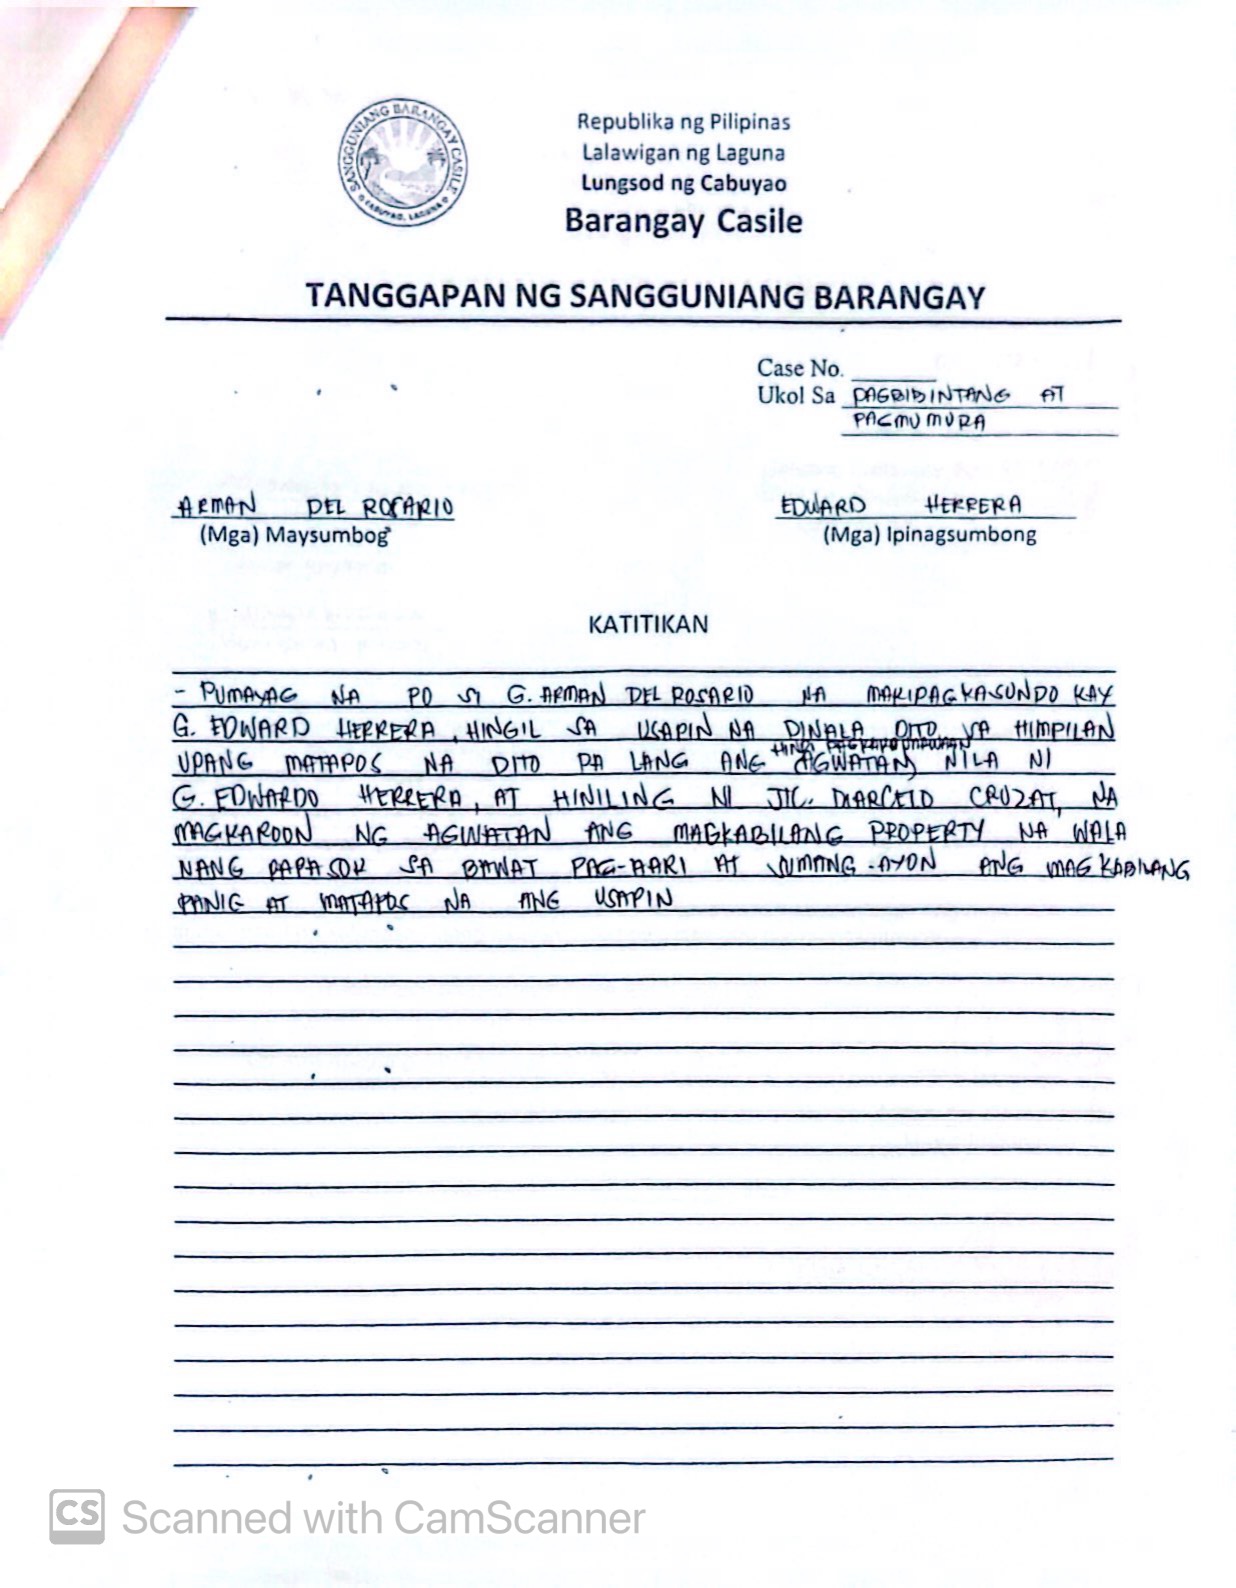 SANGGUNIANG BARANGAY CASILE
CABUYAO, LAGUNA
Republika ng Pilipinas
Lalawigan ng Laguna
Lungsod ng Cabuyao
Barangay Casile
TANGGAPAN NG SANGGUNIANG BARANGAY
Case No.
Ukol Sa PAGBIBINTANG AT
PAGMUMURA
ARMAN DEL ROSARIO
(Mga) Maysumbog
EDWARD HERRERA
(Mga) Ipinagsumbong
KATITIKAN
- PUMAYAG NA PO SI G. ARMAN DEL ROSARIO NA MAKIPAGKASUNDO KAY
G. EDWARD HERRERA, HINGIL SA USAPIN NA DINALA DITO SA HIMPILAN
HINDI PAGKAKAUNAWAAN
UPANG MATAPOS NA DITO PA LANG ANG (AGWATAN) NILA NI
G. EDWARDO HERRERA, AT HINILING NI CRUZAT, NA
MAGKAROON NG AGWATAN ANG MAGKABILANG PROPERTY NA WALA
NANG PAPASOK SA BAWAT PAG-AARI AT SUMANG-AYON ANG MAGKABILANG
PANIG AT MATAPOS NA ANG USAPIN
CS Scanned with CamScanner